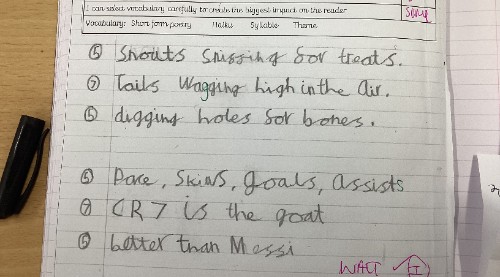 I can select vocabulary carefully to create the biggest impact on the reader
Vocabulary: Short form poetry Haiku Syllable Theme
⑤ Snouts sniffing for treats.
⑦ Tails wagging high in the air.
⑤ digging holes for bones.
⑤ Pace, skills, goals, assists
⑦ CR7 is the goat
⑤ better than Messi
WALT I